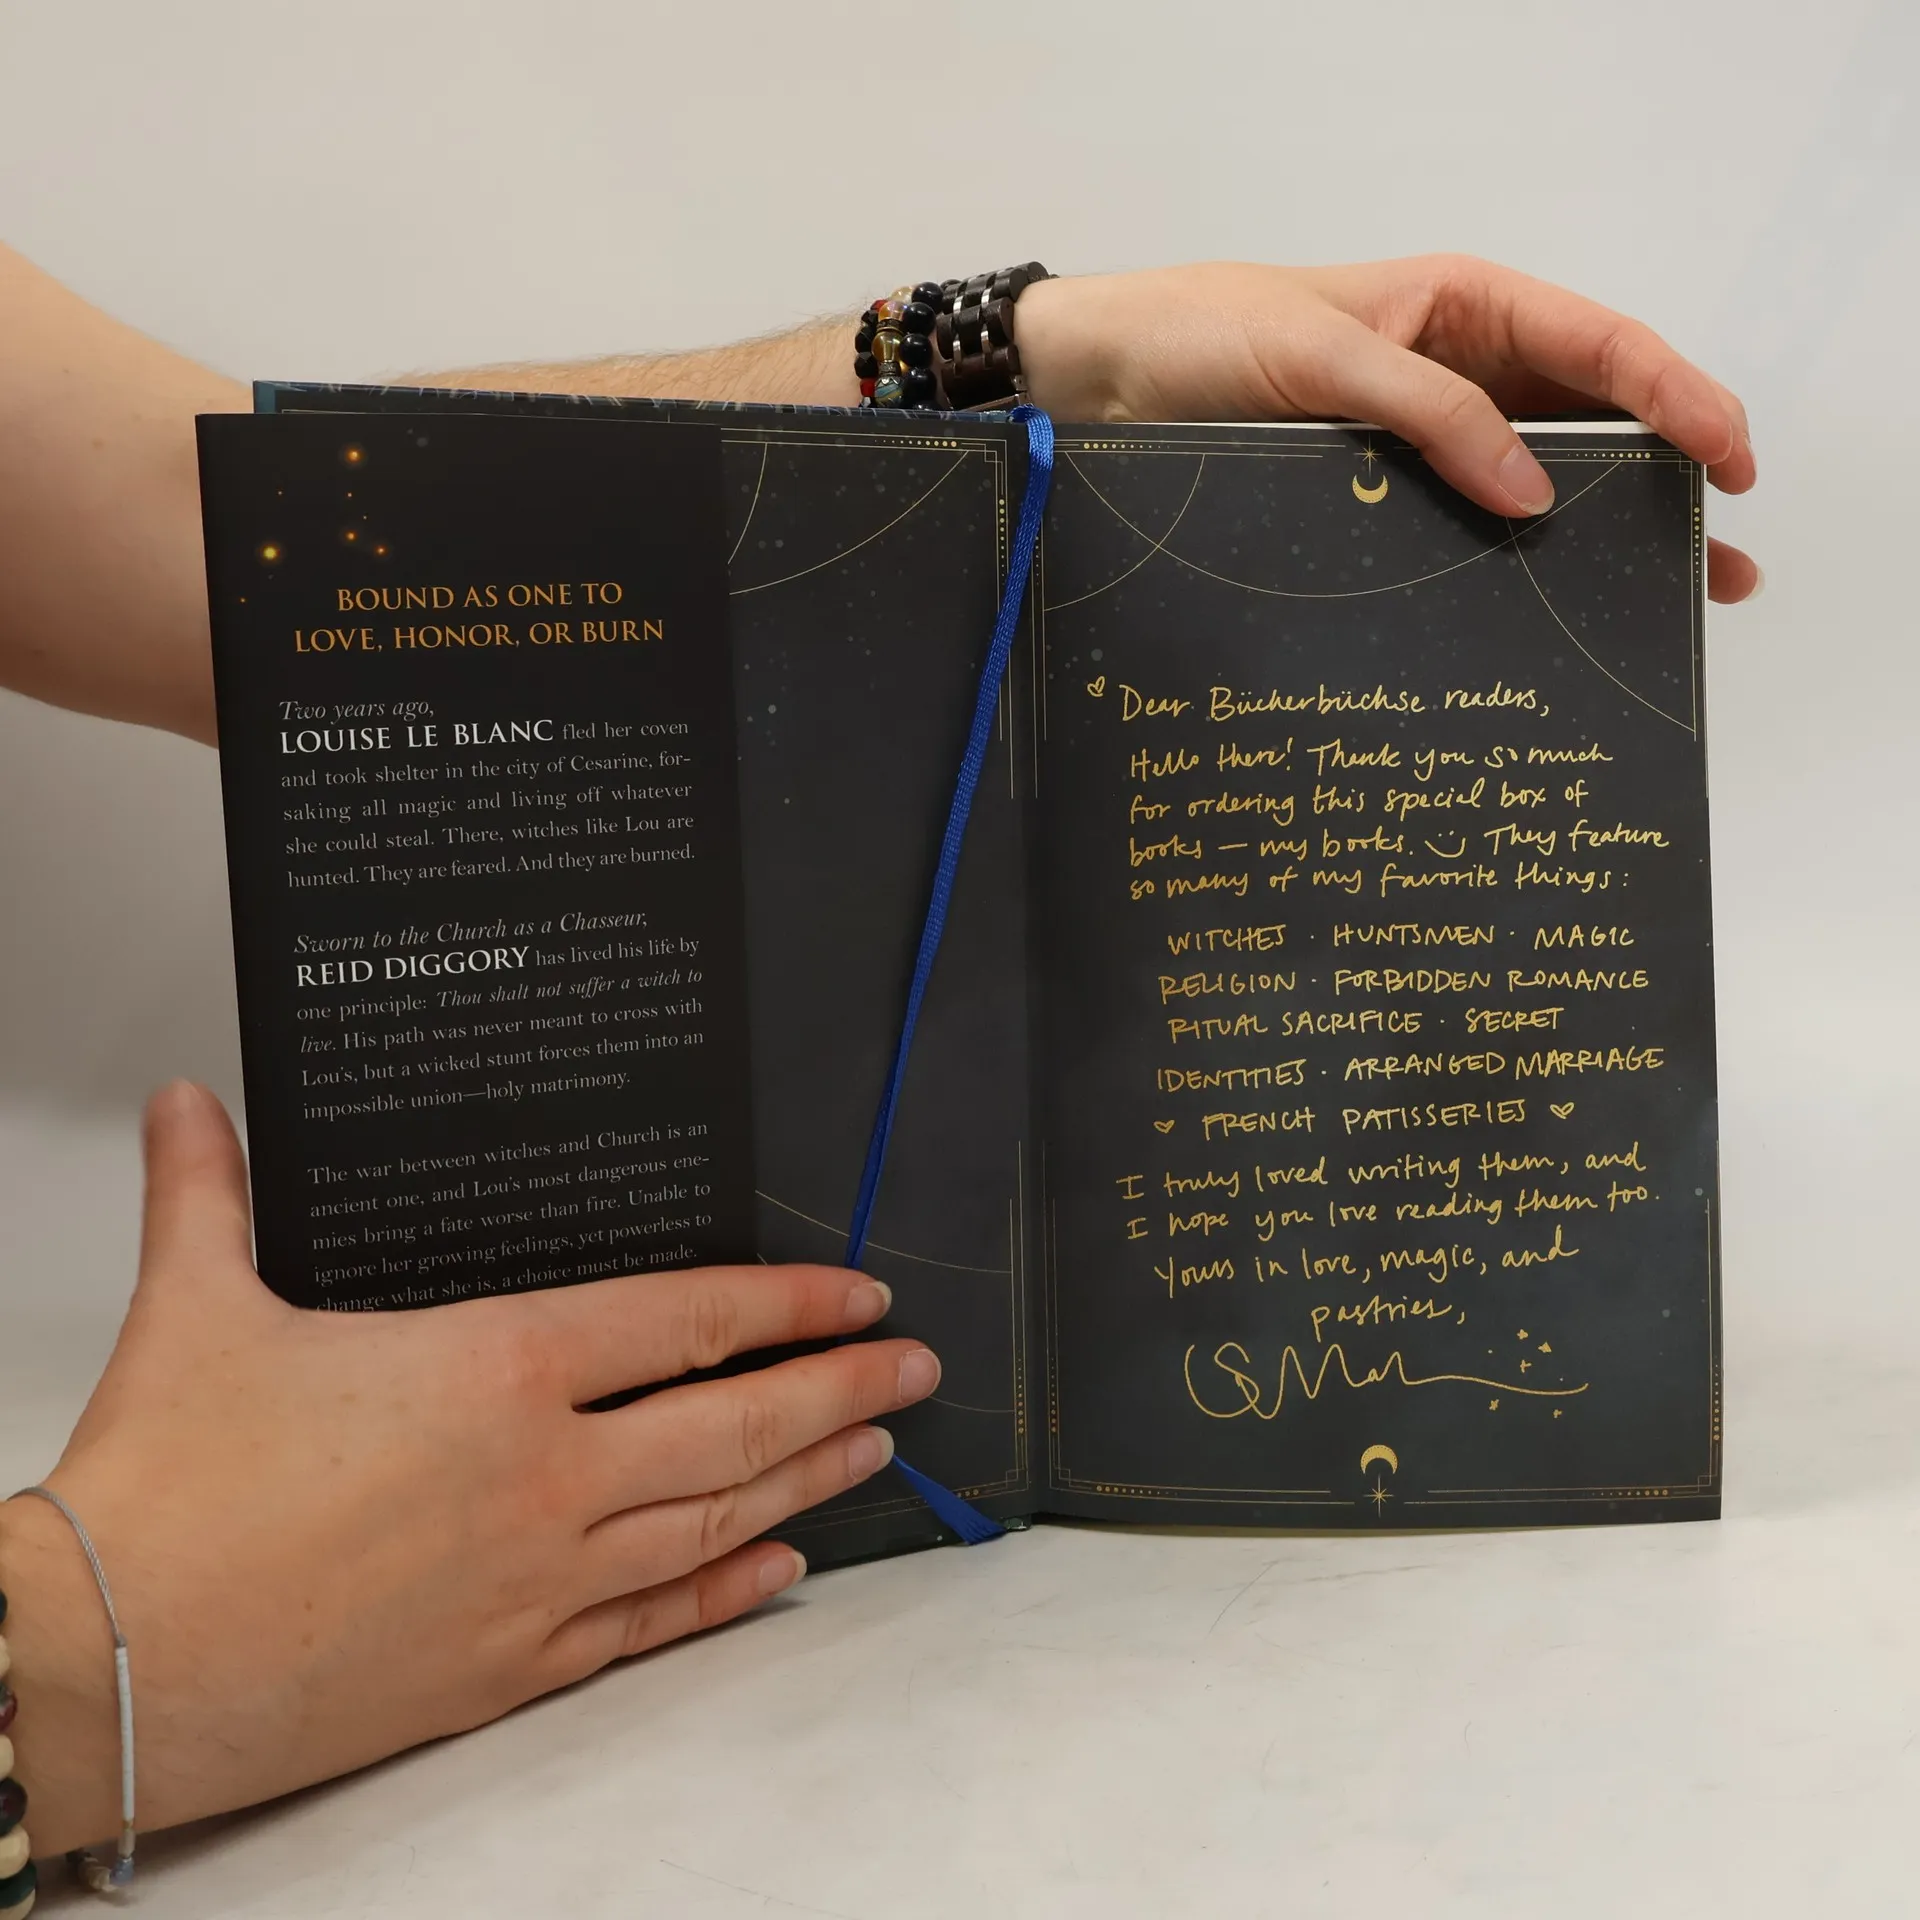 BOUND AS ONE TO
LOVE, HONOR, OR BURN
Two years ago,
LOUISE LE BLANC fled her coven
and took shelter in the city of Cesarine, for-
saking all magic and living off whatever
she could steal. There, witches like Lou are
hunted. They are feared. And they are burned.
Sworn to the Church as a Chasseur,
REID DIGGORY has lived his life by
one principle: Thou shalt not suffer a witch to
live. His path was never meant to cross with
Lou's, but a wicked stunt forces them into an
impossible union—holy matrimony.
The war between witches and Church is an
ancient one, and Lou's most dangerous ene-
mies bring a fate worse than fire. Unable to
ignore her growing feelings, yet powerless to
change what she is, a choice must be made.
Dear Bücherbüchse readers,
Hello there! Thank you so much
for ordering this special box of
books — my books. They feature
so many of my favorite things:
WITCHES · HUNTSMEN · MAGIC
RELIGION · FORBIDDEN ROMANCE
RITUAL SACRIFICE · SECRET
IDENTITIES · ARRANGED MARRIAGE
♥ FRENCH PATISSERIES ♥
I truly loved writing them, and
I hope you love reading them too.
Yours in love, magic, and
pastries,